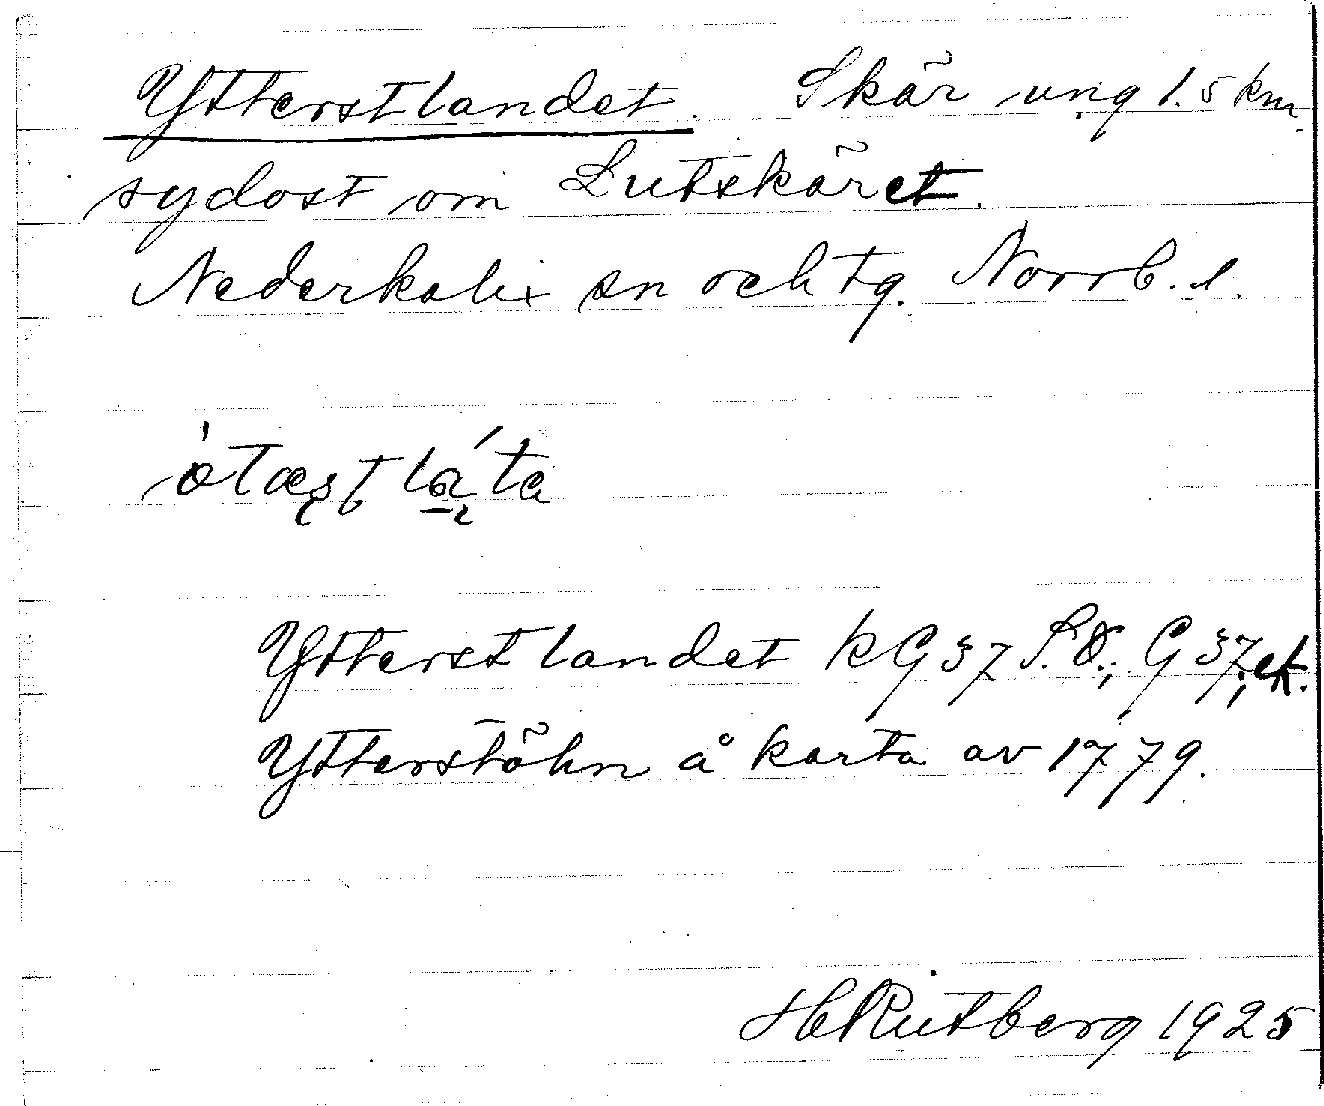 Ytterstlandet. Skär ung 1.5 km.
sydost om Lutskäret.
Nederkalix sn och tg. Norrb. l.
Ytterstlandet k G 37 S.O.; G 37; ek.
Ytterstöhn å karta av 1779.
H Rutberg 1925